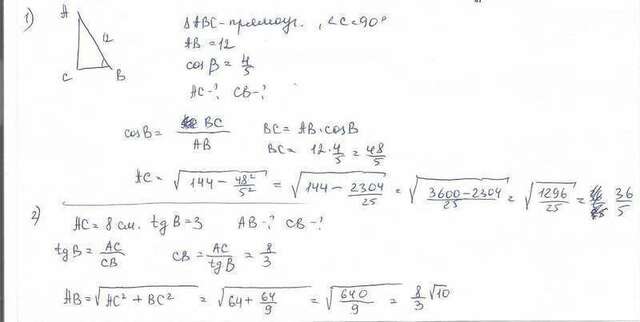 1) A
12
C B
Δ ABC - прямоуг. , ∠C = 90°
AB = 12
cos β = 4/5
AC - ? CB - ?
cos B = BC/AB BC = AB · cos B
BC = 12 · 4/5 = 48/5
AC = √(144 - 48²/5²) = √(144 - 2304/25) = √((3600 - 2304)/25) = √(1296/25) = 36/5
2) AC = 8 см. tg B = 3 AB - ? CB - ?
tg B = AC/CB CB = AC/tg B = 8/3
AB = √(AC² + BC²) = √(64 + 64/9) = √(640/9) = 8/3 √10